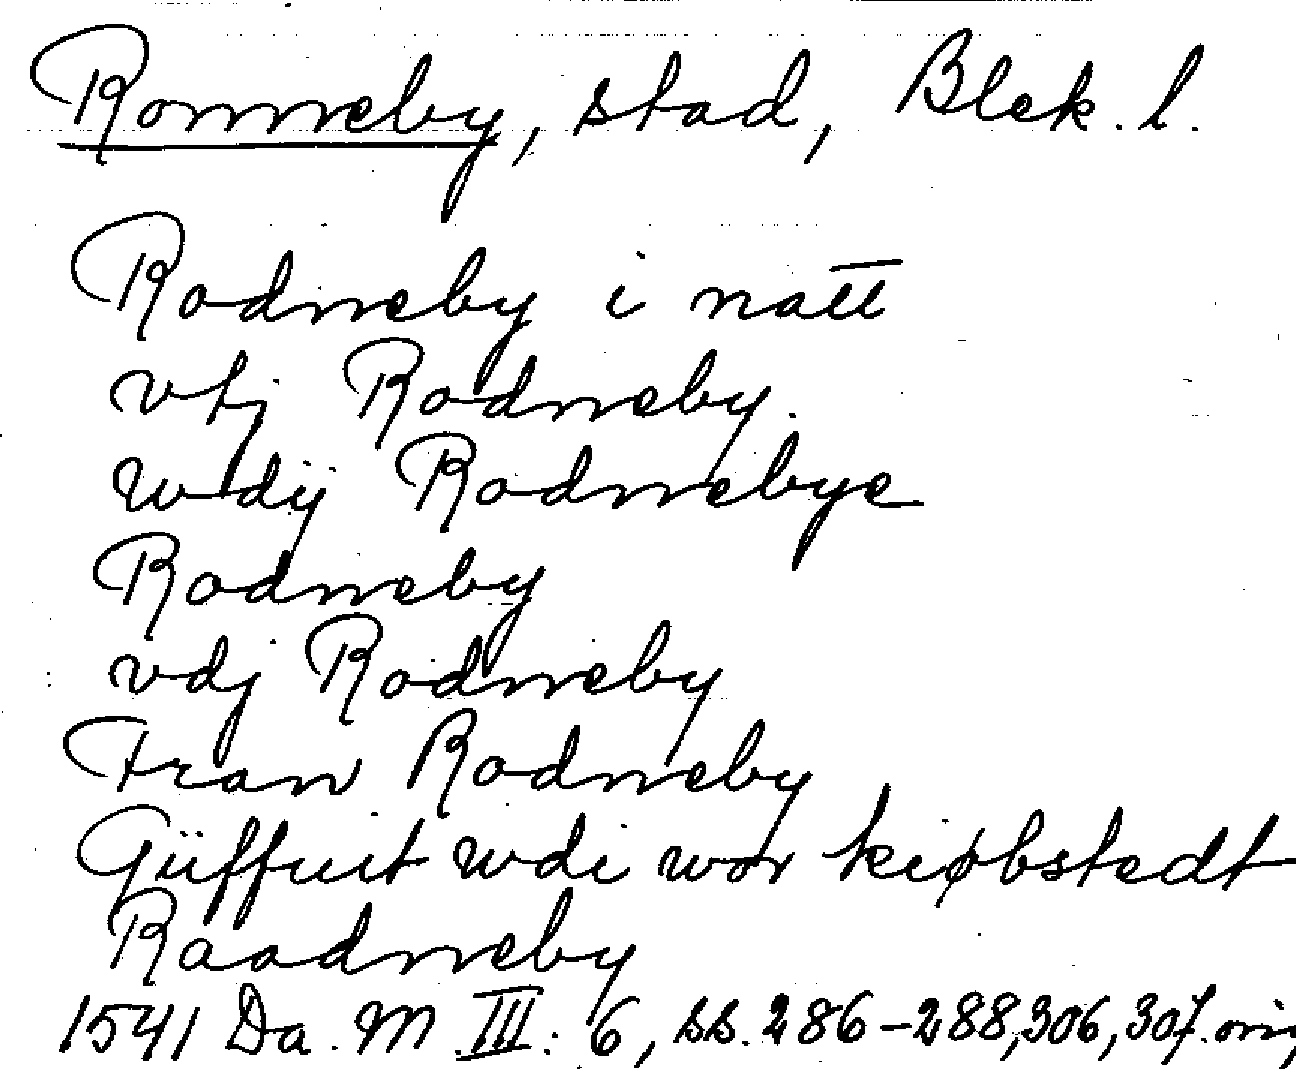 Ronneby, stad, Blek. l.
Rodneby i natt
vtj Rodneby.
wdij Rodnebye
Rodneby
vdj Rodneby
Fran Rodneby
Güffuit wdi wor kiøbstedt
Raadneby
1541 Da. M III: 6, ss. 286-288, 306, 307. orig